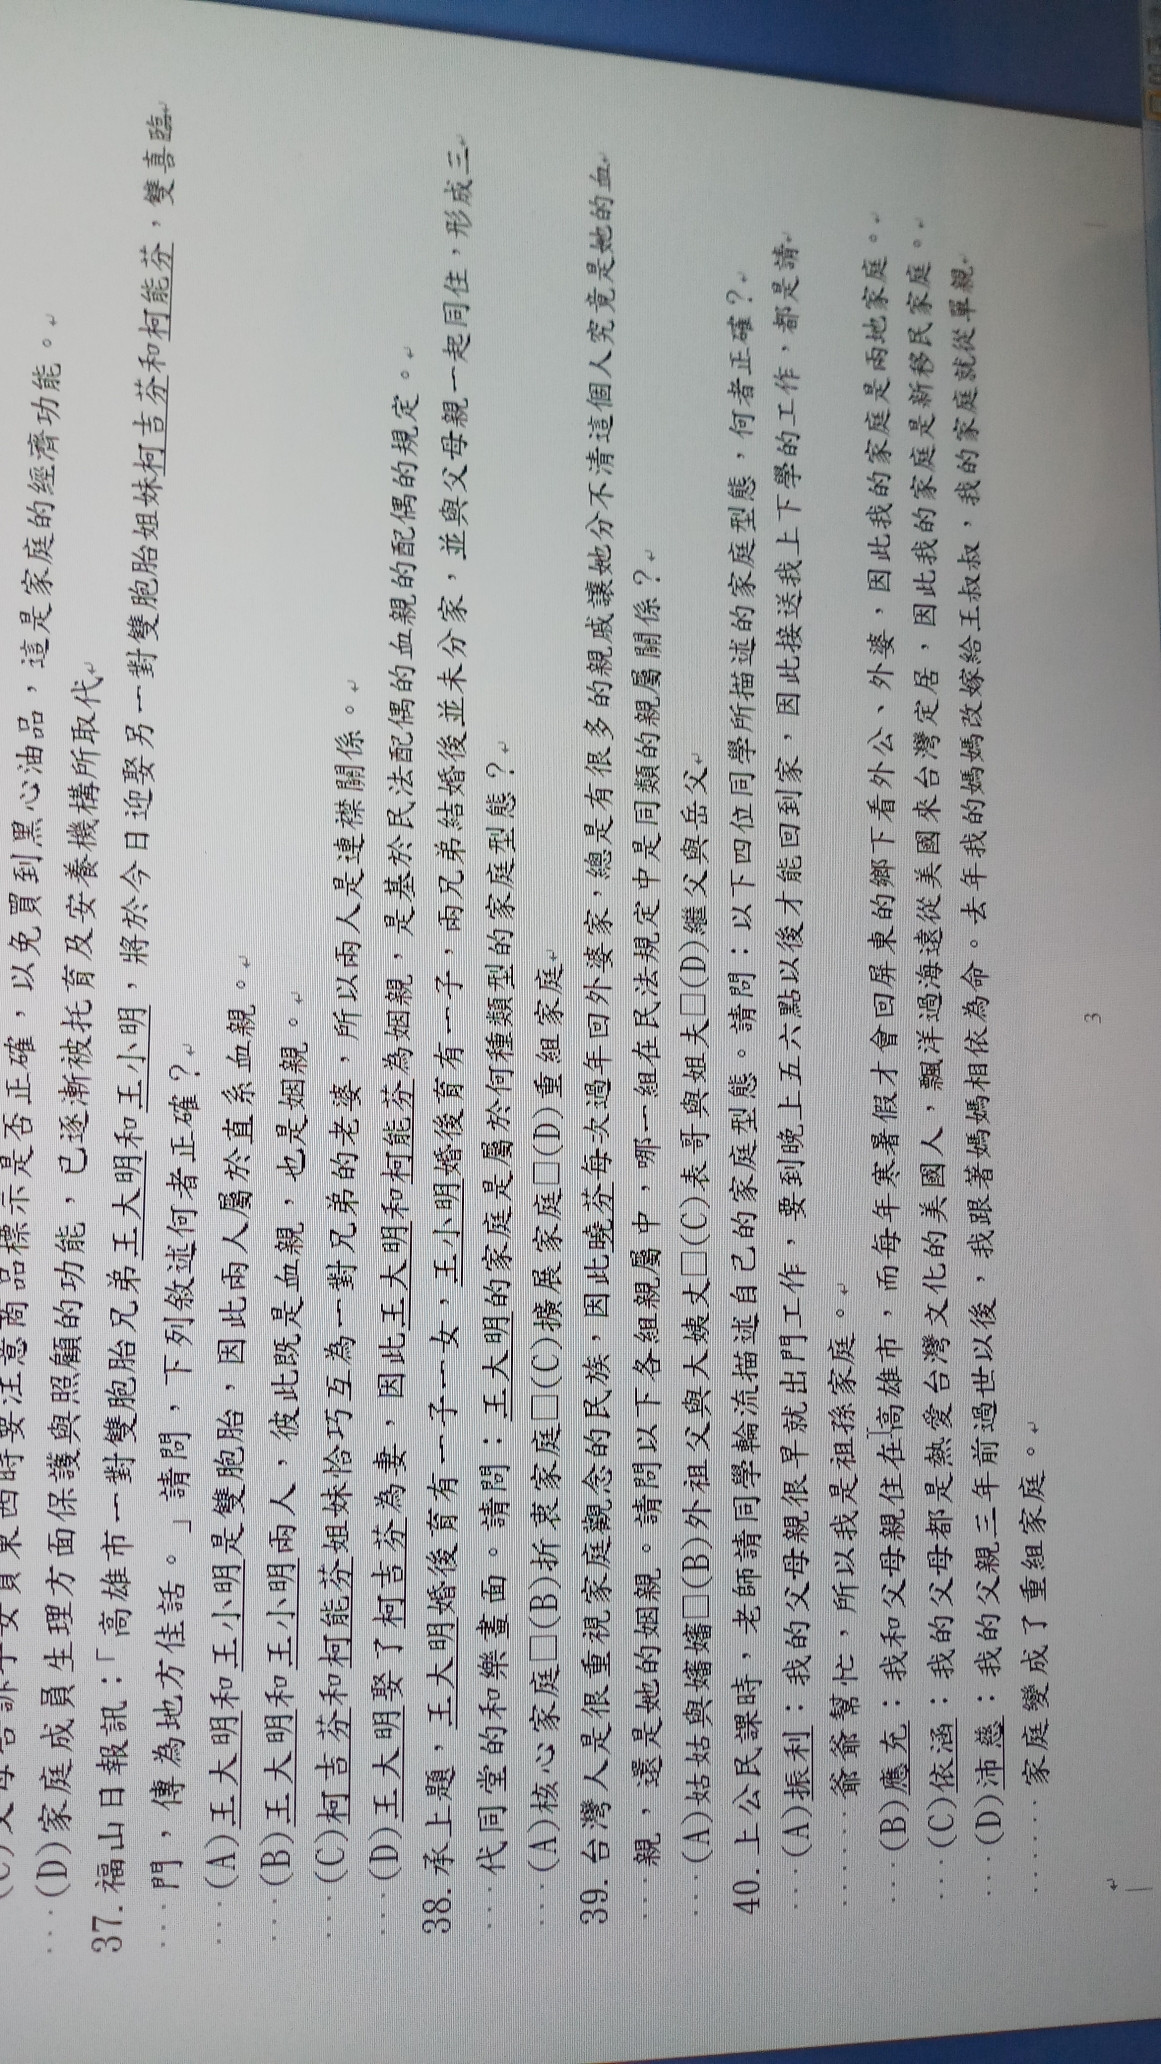 (D)家庭成員生理方面保護與照顧的功能，已逐漸被托育及安養機構所取代
37.福山日報訊：「高雄市一對雙胞胎兄弟王大明和王小明，將於今日迎娶另一對雙胞胎姐妹柯吉芬和柯能芬，雙喜臨
門，傳為地方佳話。」請問，下列敘述何者正確？
(A)王大明和王小明是雙胞胎，因此兩人屬於直系血親。
(B)王大明和王小明兩人，彼此既是血親，也是姻親。
(C)柯吉芬和柯能芬姐妹恰巧互為一對兄弟的老婆，所以兩人是連襟關係。
(D)王大明娶了柯吉芬為妻，因此王大明和柯能芬為姻親，是基於民法配偶的血親的配偶的規定。
38.承上題，王大明婚後育有一子一女，王小明婚後育有一子，兩兄弟結婚後並未分家，並與父母親一起同住，形成三
代同堂的和樂畫面。請問：王大明的家庭是屬於何種類型的家庭型態？
(A)核心家庭□(B)折衷家庭□(C)擴展家庭□(D)重組家庭
39.台灣人是很重視家庭觀念的民族，因此曉芬每次過年回外婆家，總是有很多的親戚讓她分不清這個人究竟是她的血
親，還是她的姻親。請問以下各組親屬中，哪一組在民法規定中是同類的親屬關係？
(A)姑姑與嬸嬸□(B)外祖父與大姨丈□(C)表哥與姐夫□(D)繼父與岳父
40.上公民課時，老師請同學輪流描述自己的家庭型態。請問：以下四位同學所描述的家庭型態，何者正確？
(A)振利：我的父母親很早就出門工作，要到晚上五六點以後才能回到家，因此接送我上下學的工作，都是請
爺爺幫忙，所以我是祖孫家庭。
(B)應充：我和父母親住在高雄市，而每年寒暑假才會回屏東的鄉下看外公、外婆，因此我的家庭是兩地家庭。
(C)依涵：我的父母都是熱愛台灣文化的美國人，飄洋過海遠從美國來台灣定居，因此我的家庭是新移民家庭。
(D)沛慈：我的父親三年前過世以後，我跟著媽媽相依為命。去年我的媽媽改嫁給王叔叔，我的家庭就從單親
家庭變成了重組家庭。
3